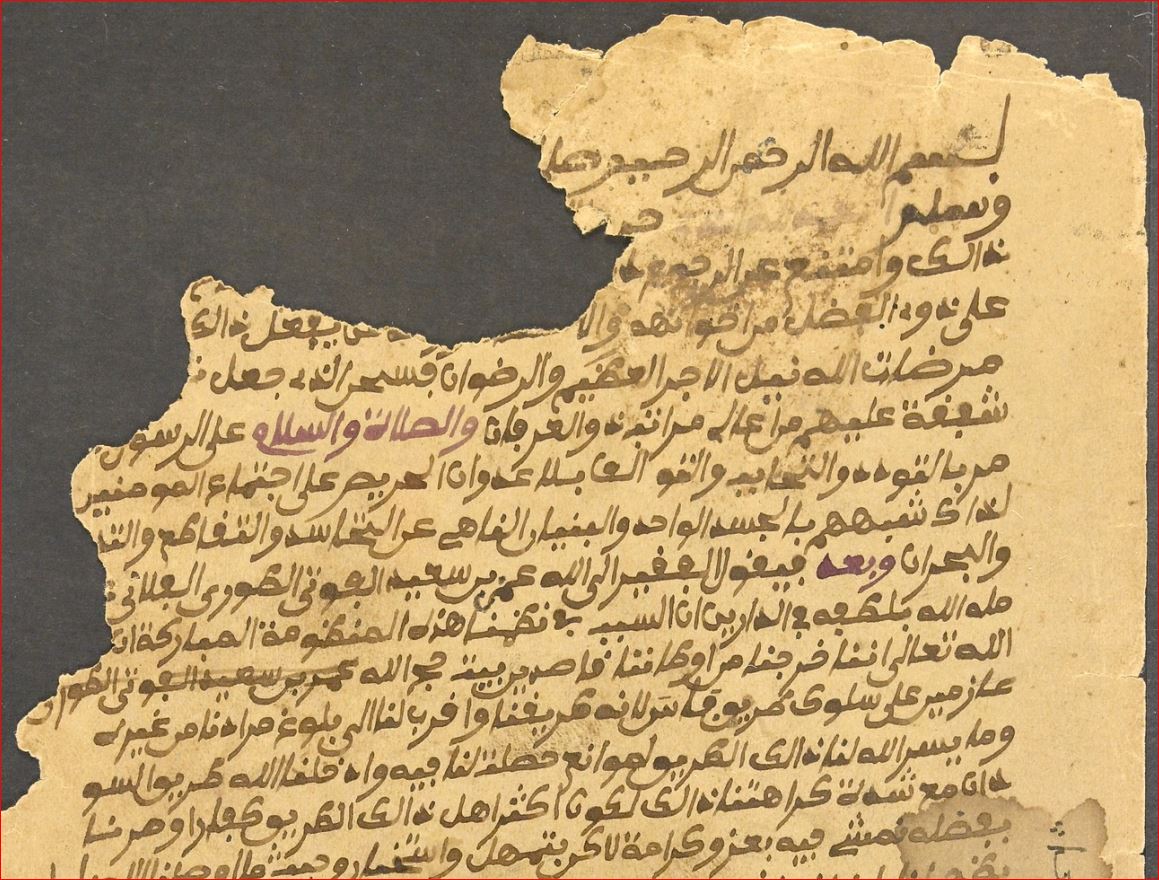 بسم الله الرحمن الرحيم صلى
وسلم
ذالك وامتنع عن الرجوع
على ذوي الفضل من اخوانهم والا يفعل ذالك
مرضات الله نيل الاجر العظيم والرضوان فسبحن الذي جعل
شفقة عليهم من اعالي مراتب والعرفان والصلاة والسلام على الرسول
مر بالتودد والتحابب والتوالف بلا عدوان الحريص على اجتماع المومنين
لذاك شبههم بالجسد الواحد والبنيان الناهي عن التحاسد والتقاطع والتد
والهجران وبعد فيقول الفقير الى الله عمر بن سعيد الفوتي الطوري الفلاني
مله الله بلطفه في الدارين ان السبب في نظمنا هذه المنظومة المباركة ان
الله تعالى اننا خرجنا من اوطاننا قاصدين بيت حج الله عمر بن سعيد الفوتي الطور
عازمين على سلوك طريق فاس لانه طريقنا واقرب لنا الى بلوغ مرادنا من غيره
وما يسر الله لنا ذالك الطريق لموانع حصلت لنا فيه وادخلنا الله طريق السو
دان مع شدة كراهتنا ذالك لكون اكثر اهل ذالك الطريق كفارا وصرنا
بفضله نمشي فيه بعز وكرامة لاكن بتمهل